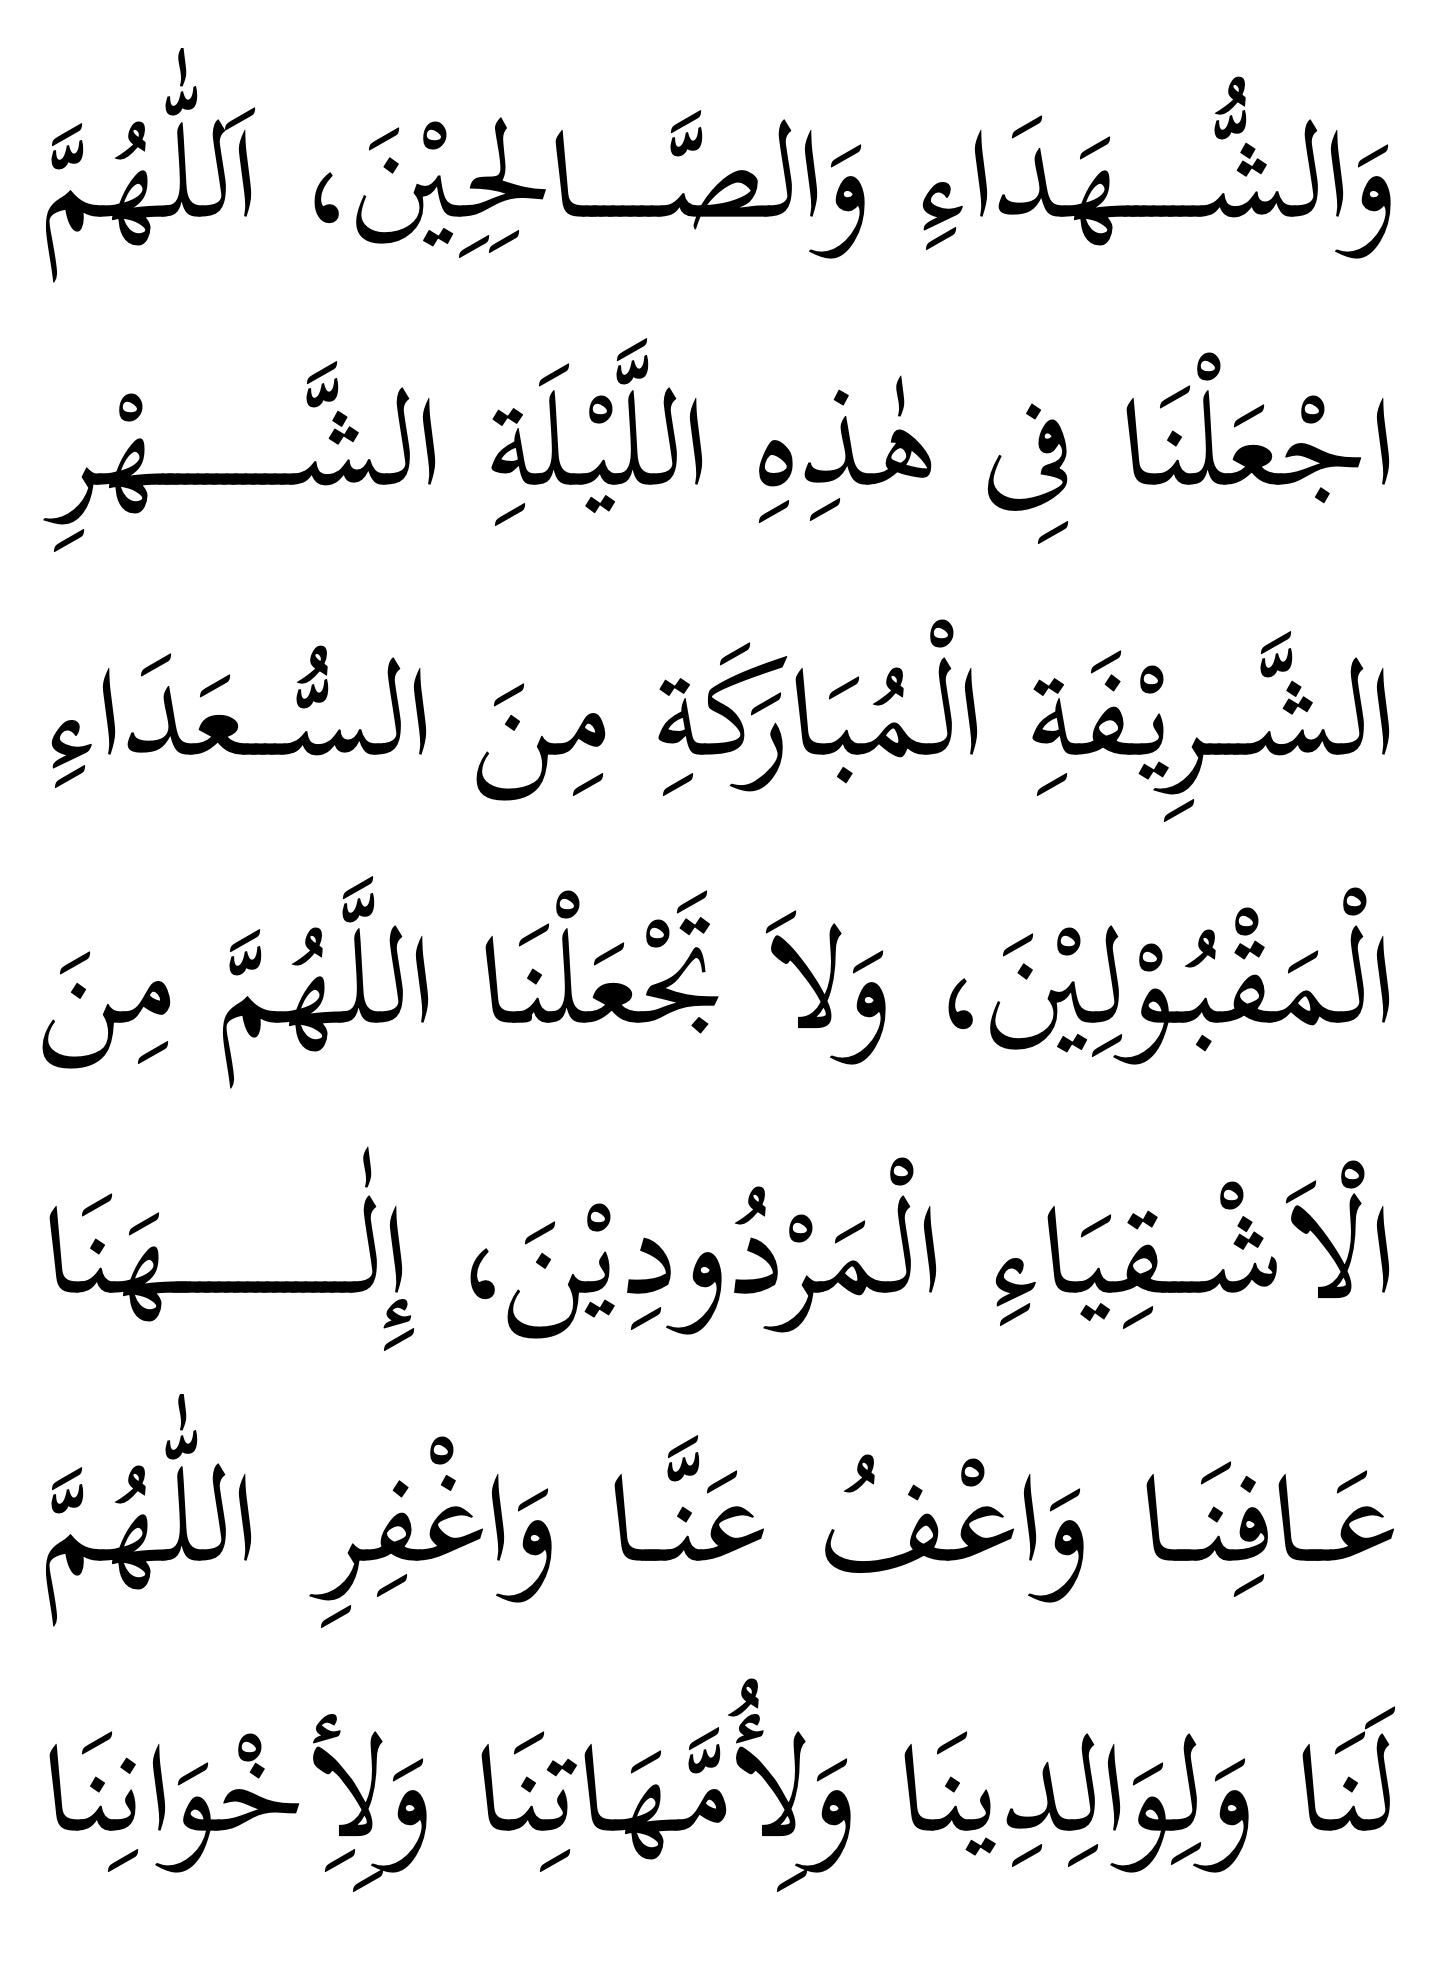 وَالشُّـــهَدَاءِ وَالصَّـــالِحِيْنَ، اَللّٰهُمَّ
اجْعَلْنَا فِى هٰذِهِ اللَّيْلَةِ الشَّـــــهْرِ
الشَّـــرِيْفَةِ الْمُبَارَكَةِ مِنَ السُّـــعَدَاءِ
الْمَقْبُوْلِيْنَ، وَلاَ تَجْعَلْنَا اللَّهُمَّ مِنَ
الْاَشْـــقِيَاءِ الْمَرْدُودِيْنَ، إِلٰـــــــهَنَا
عَـافِنَـا وَاعْفُ عَنَّـا وَاغْفِرِ اللّٰهُمَّ
لَنَا وَلِوَالِدِينَا وَلِأُمَّهَاتِنَا وَلِأِخْوَانِنَا